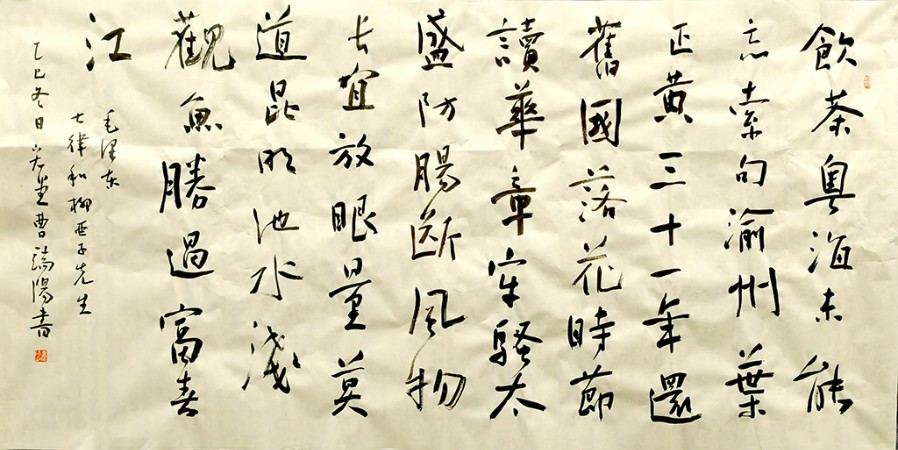 飲茶粵海未能
忘索句渝州葉
正黃三十一年還
舊國落花時節
讀華章牢騷太
盛防腸斷風物
长宜放眼量莫
道昆明池水淺
觀魚勝過富春
江
毛泽东
七律和柳亞子先生
乙巳冬日曹瑞陽書